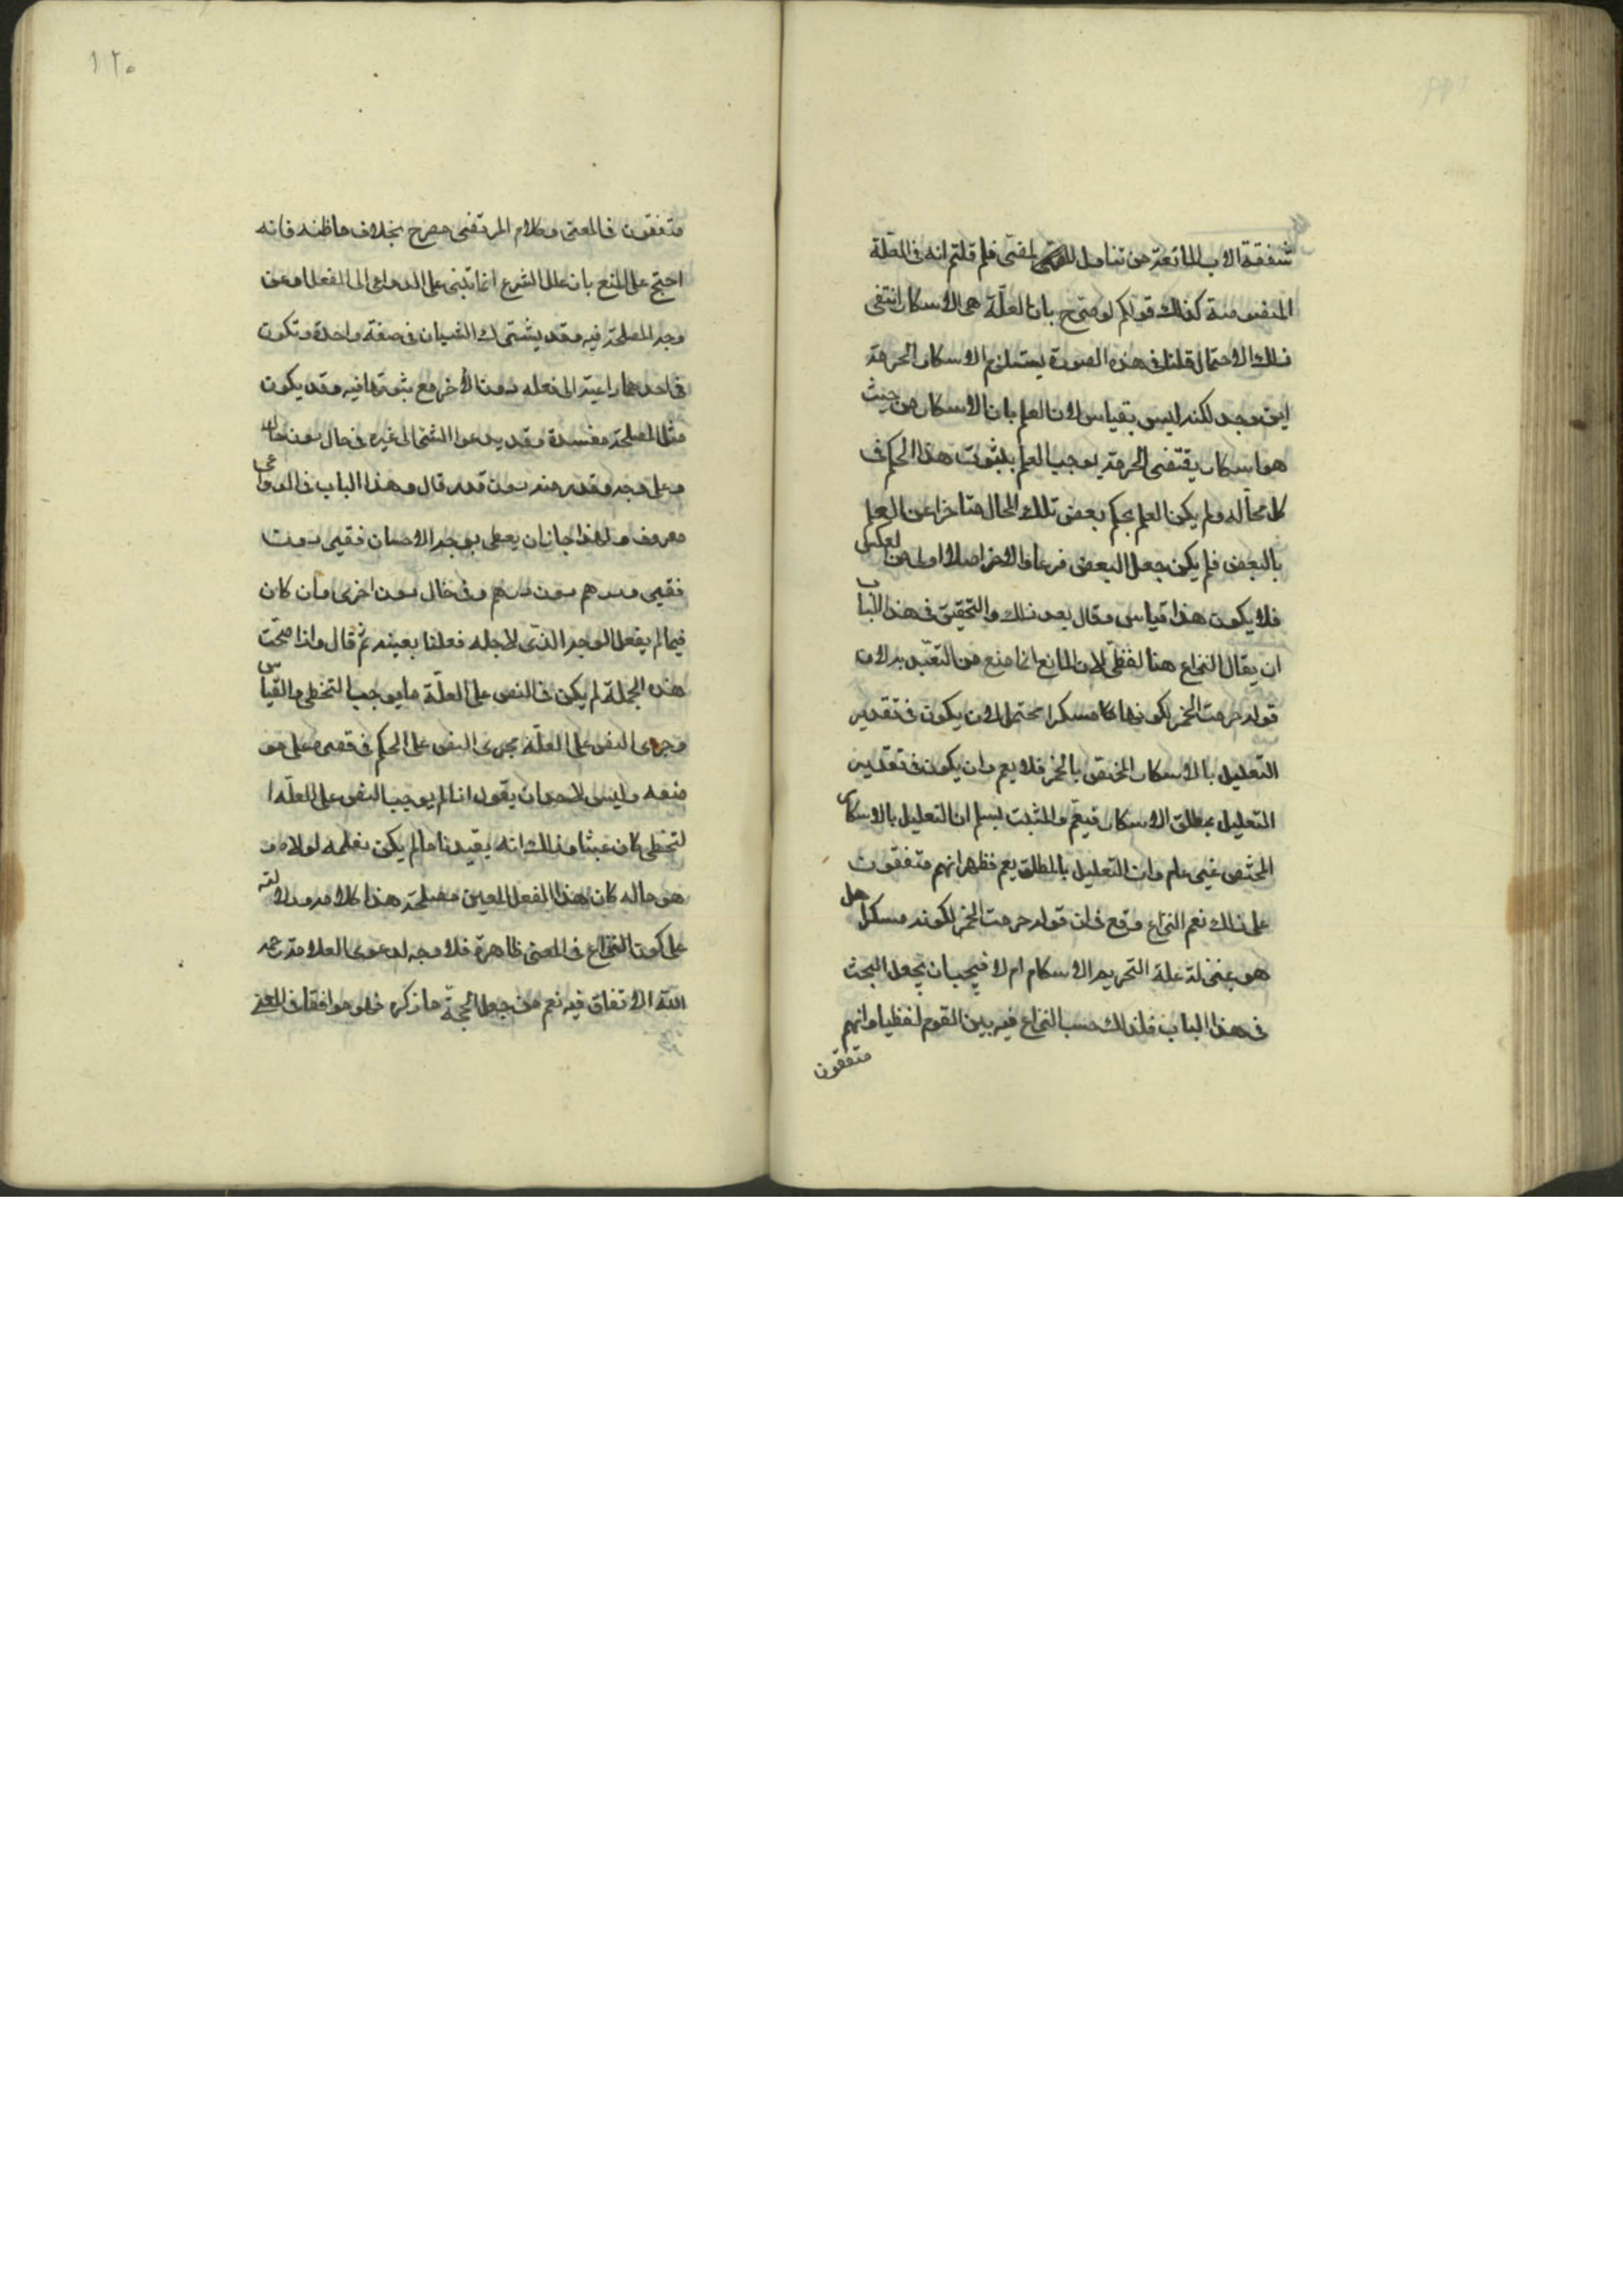 شفقة الاب المانعة من تناول المضر فلم قلتم انه فى العلة
المنصوصة كذلك قولكم لو صرح بان العلة هى الاسكار انتفى
ذلك الاحتمال قلنا فى هذه الصورة يستلزم الاسكار الحرمة
اين وجد لكنه ليس بقياس لان العلم بان الاسكار من حيث
هو اسكار يقتضى الحرمة يوجب العلم بثبوت هذا الحكم فى
كل محاله ولم يكن العلم بحكم بعض تلك المحال متاخرا عن العلم
بالبعض فلم يكن جعل البعض فرعا والاخر اصلا اولى من العكس
فلا يكون هذا قياس وقال بعد ذلك والتحقيق فى هذا الباب
ان يقال النزاع هنا لفظى لان المانع انما منع من التعبد به لان
قوله حرمت الخمر لكونها مسكرا محتمل لان يكون فى تقدير
التعليل بالاسكار المختص بالخمر فلا يعم وان يكون فى تقدير
التعليل بمطلق الاسكار فيعم والمثبت يسلم ان التعليل بالاسكار
المختص غير عام وان التعليل بالمطلق يعم فظهر انهم متفقون
على ذلك نعم النزاع وقع فى ان قوله حرمت الخمر لكونه مسكرا هل
هو بمنزلة علة التحريم الاسكام ام لا فيجب ان يجعل البحث
فى هذا الباب فلذلك حسب النزاع فيه بين القوم لفظيا وانهم
متفقون
١٢٠
متفقون فى المعنى وكلام المرتضى مصرح بخلاف ما ظنه فانه
احتج على المنع بان علل الشرع انما تبنى على الدواعى الى الفعل او عن
وجه المصلحة فيه وقد يشترك الشيان فى صفة واحدة وتكون
فى احدهما داعية الى فعله دون الاخر مع ثبوتها فيه وقد يكون
مثل المصلحة مفسدة وقد يدعوا الشئ الى غيره فى حال دون حال
وعلى وجه وقدر منه دون قدر قال وهذا الباب فى الدواعى
معروف ولهذا جاز ان يعطى بوجه الاحسان فقير دون
فقير ودرهم دون درهم وفى حال دون اخرى وان كان
فيما لم يفعل الوجه الذى لاجله فعلنا بعينه ثم قال واذا صحت
هذه الجملة لم يكن فى النص على العلة ما يوجب التخطى والقياس
وجرى النص على العلة مجرى النص على الحكم فى قصره على مو
ضعه وليس لاحد ان يقول اذا لم يوجب النص على العلة ا
لتخطى كان عبثا وذلك انه يفيدنا ما لم يكن نعلمه لولاه و
هو ماله كان هذا الفعل المعين مصلحة هذا كلامه ودلالته
على كون النزاع فى المعنى ظاهرة فلا وجه لدعوى العلامة رحمه
الله الاتفاق فيه نعم من جعل الحجة ما ذكره فهو موافقا فى المعنى